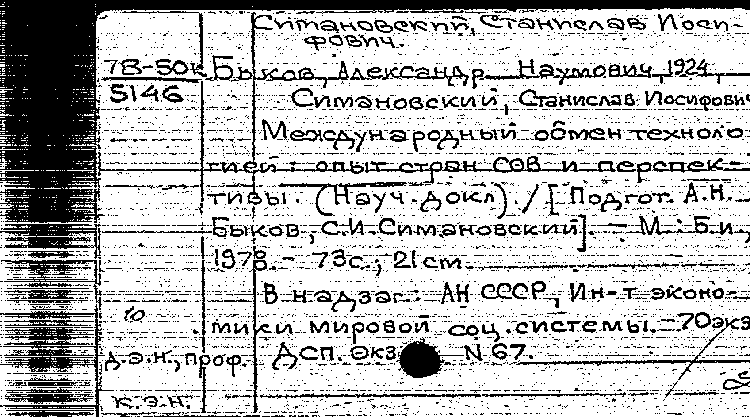 Симановский, Станислав Иоси-
фович.
78-50к Быков, Александр Наумович, 1924,
5146 Симановский, Станислав Иосифович
Международный обмен техноло-
гией: опыт стран СЭВ и перспек-
тивы. (Науч. докл) / [Подгот. А.Н.
Быков, С.И. Симановский]. - М.: Б.и.,
1978. - 73с.; 21см.
В надзаг.: АН СССР, Ин-т эконо-
мики мировой соц. системы. - 70экз
д.э.н., проф. ДСП. Экз N 67.
к.э.н.